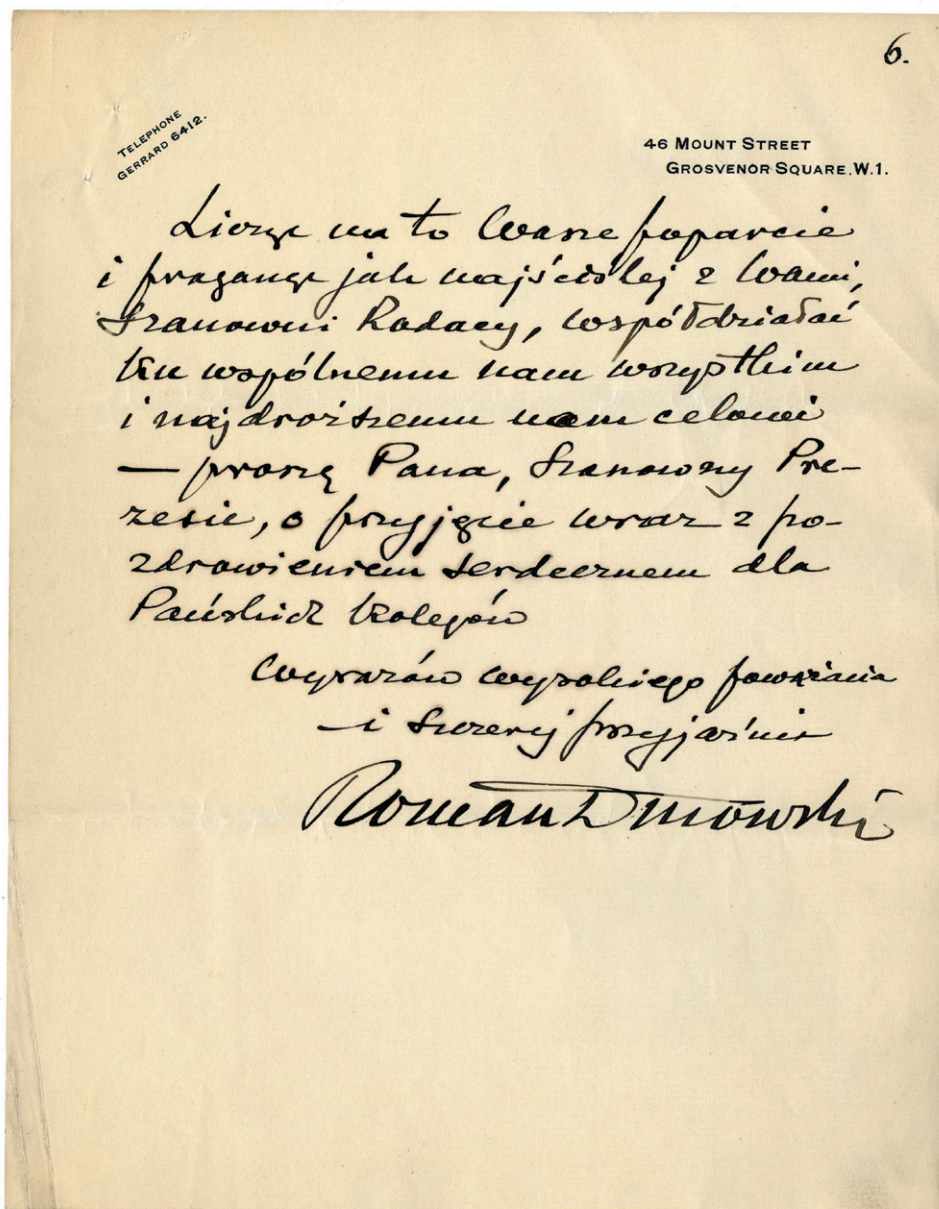 6.
TELEPHONE
GERRARD 6412.
46 MOUNT STREET
GROSVENOR SQUARE. W.1.
Licząc na to Wasze poparcie
i pragnąc jak najściślej z Wami,
Szanowni Rodacy, współdziałać
ku wspólnemu nam wszystkim
i najdroższemu nam celowi
— proszę Pana, Szanowny Pre-
zesie, o przyjęcie wraz z po-
zdrowieniem serdecznem dla
Pańskich kolegów
wyrazów wysokiego poważania
— i szczerej przyjaźni
Roman Dmowski